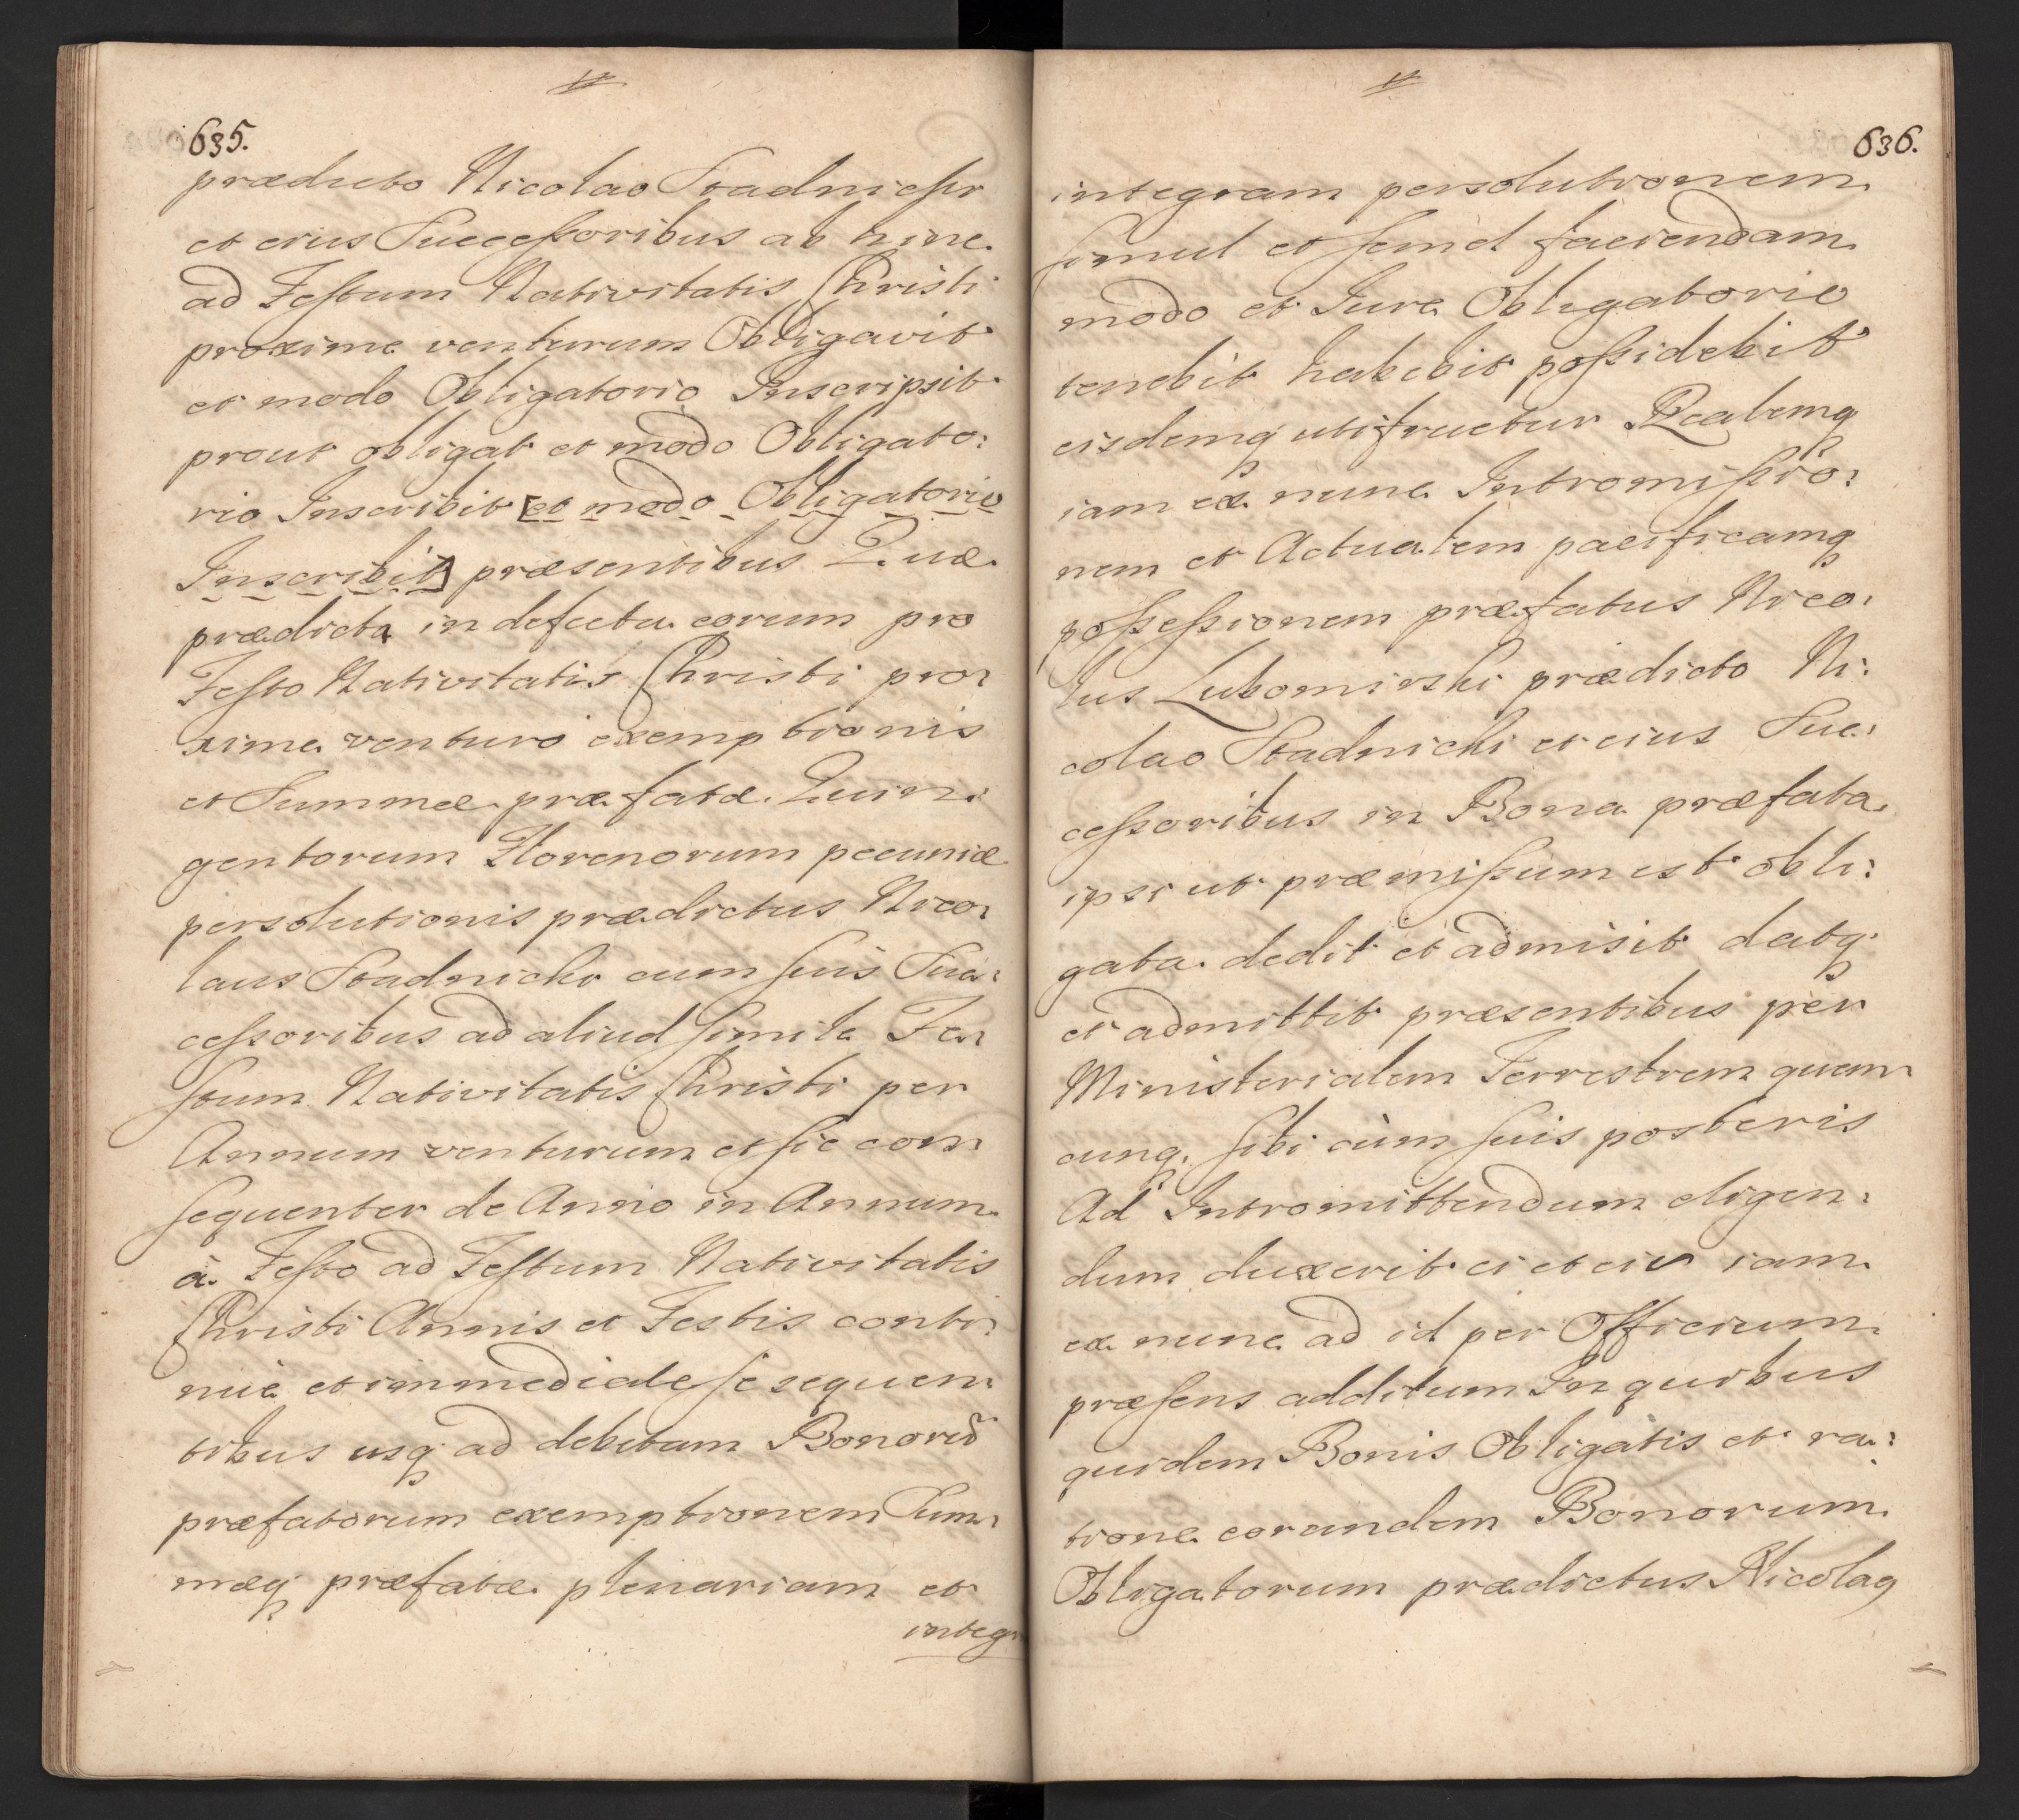 635.
prædicto Nicolao Stadnicki
et eius Successoribus ab hinc
ad Festum Nativitatis Christi
proxime venturum Obligavit
et modo Obligatorio Inscripsit
prout obligat et modo Obligato:
rio Inscribit [et modo Obligatorio
Inscribit] præsentibus Quæ
prædicta in defectu eorum pro
Festo Nativitatis Christi pro:
xime venturo exemptionis
et Summæ præfatæ Quin:
gentorum Florenorum pecuniæ
persolutionis prædictus Nico:
laus Stadnicki cum suis Suc:
cessoribus ad aliud simile Fe:
stum Nativitatis Christi per
Annum venturum et sic con:
sequenter de Anno in Annum
à Festo ad Festum Nativitatis
Christi Annis et Festis conti:
nuè et immediate se sequen:
tibus usq ad debitam Bonorū
præfatorum exemptionem Sum:
mæq præfatæ plenariam et
integr
636.
integram persolutionem
simul et semel faciendam
modo et Jure Obligatorio
tenebit habebit possidebit
eisdemq utifruetur Realemq
iam ex nunc Intromissio:
nem et Actualem pacificamq
possessionem præfatus Nico:
lus Lubomirski prædicto Ni:
colao Stadnicki et eius Suc:
cessoribus in Bona præfata
ipsi ut præmissum est obli:
gata dedit et admisit datq
et admittit præsentibus per
Ministerialem Terrestrem quem:
cunq. sibi cùm suis posteris
Ad Intromittendum eligen:
dum duxerit ei et eis iam
ex nunc ad id per Officium
præsens additum In quibus
quidem Bonis Obligatis et ra:
tione eorundem Bonorum
Obligatorum prædictus Nicolaq